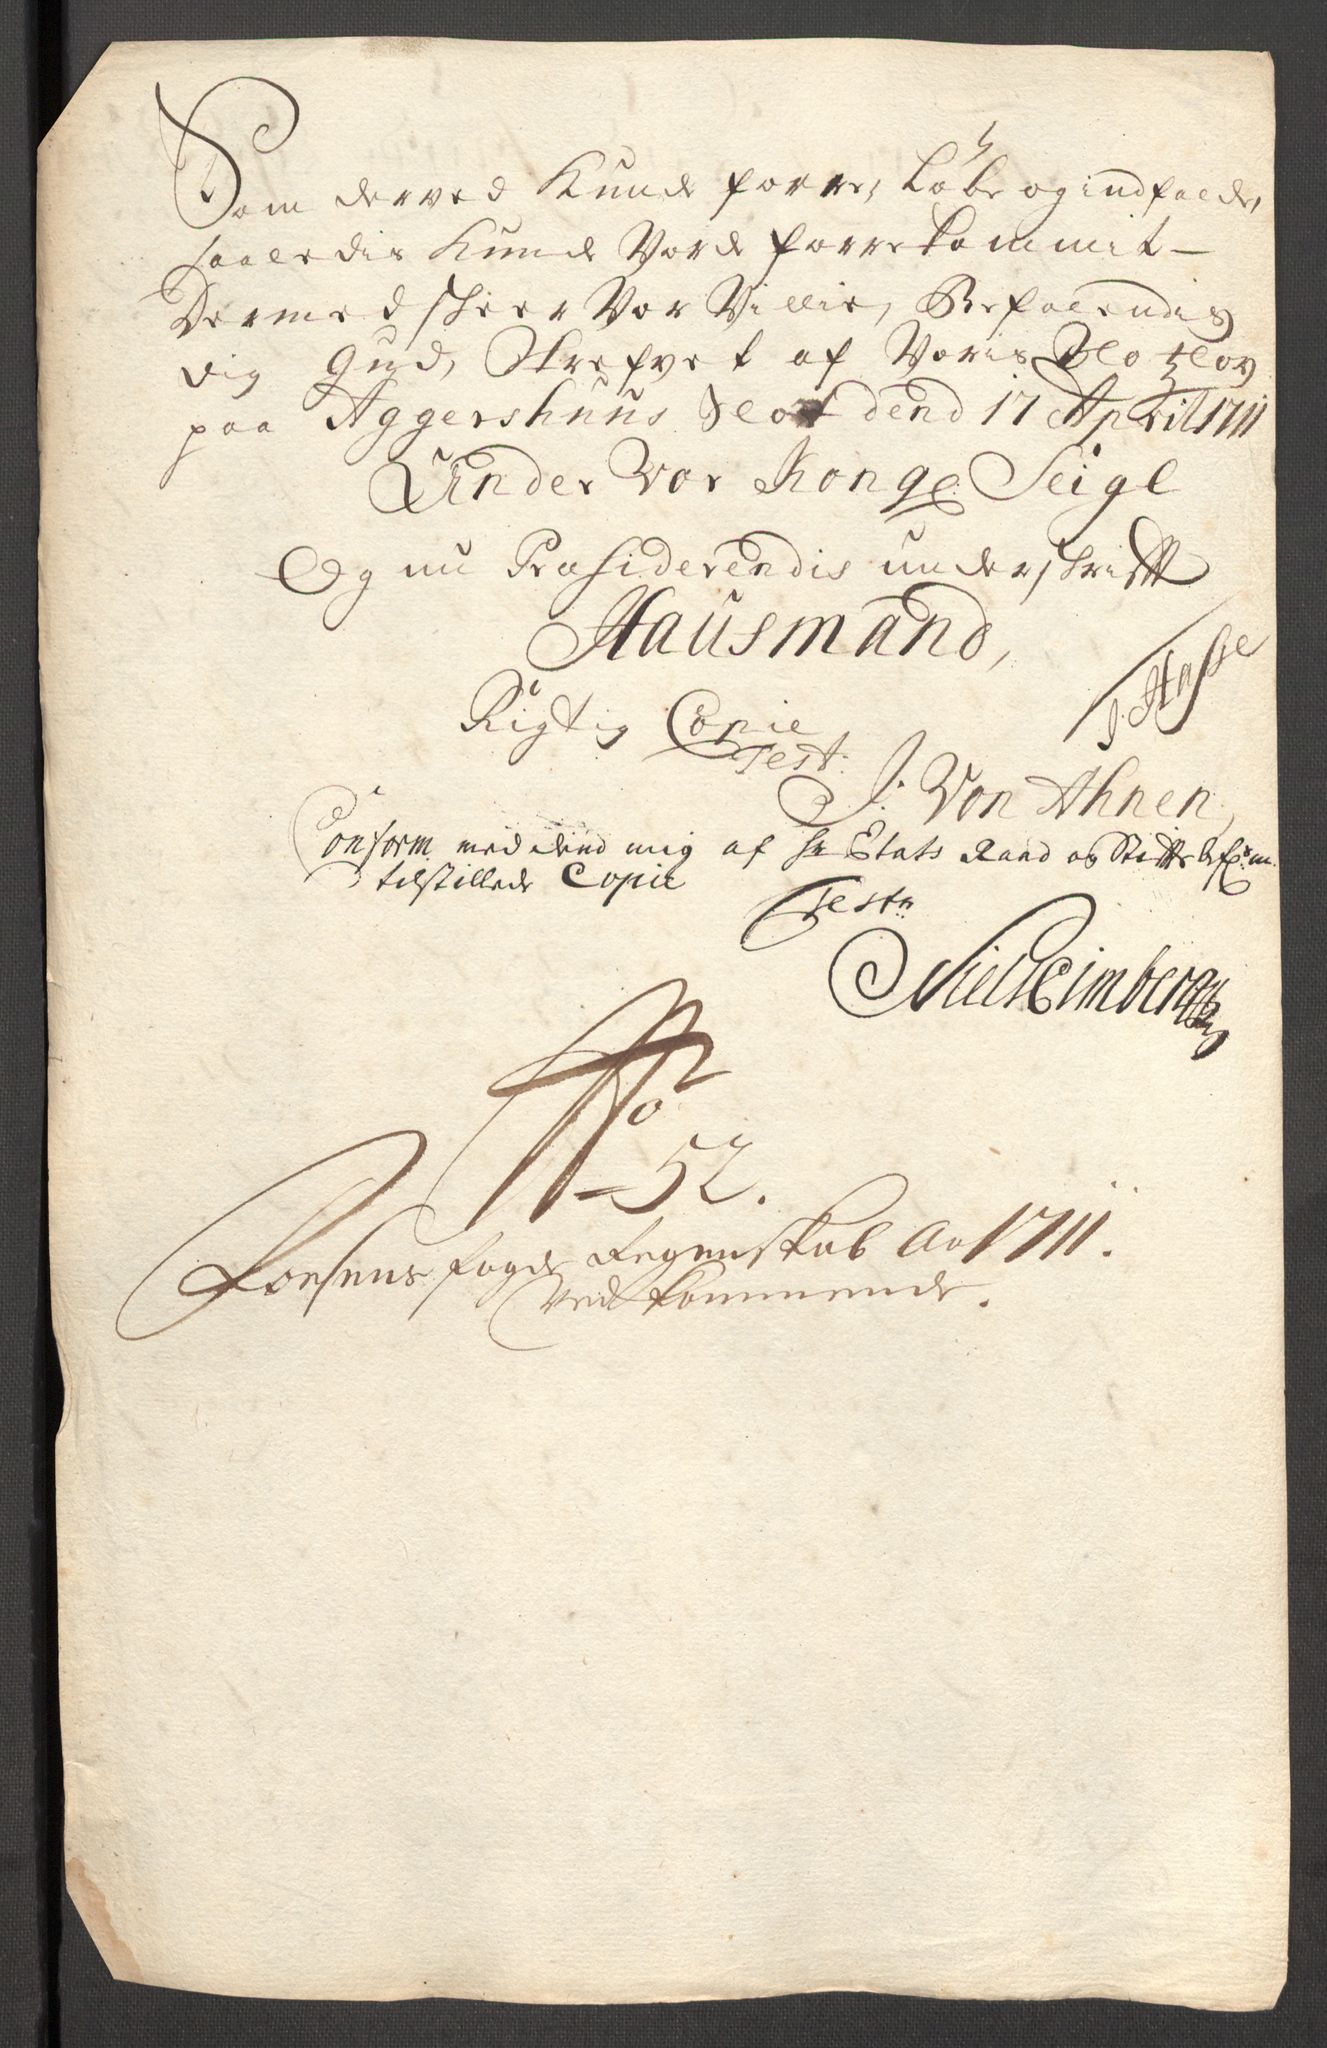 Som derved Kunde forre, Løbe og indfalde,
saaledis Kunde Vorde forrekommit –
Dermed skeer Vor Villie, Befalendis
dig Gud, Skrefvet af Voris Slotzlov
paa Aggershuus Slot dend 17 April 1711
Under Vor Konge: Seigl
Og nu Præsiderendis underskrifft
Hausmand,
J. Hasse
Rigtig Copie
Test:
J: Von Ahnen,
Conform med dend mig af Hr Etats Raad og Stifts
tilstillede Copie
Testr
Niels Heimberg
No
52.
Foesens fogde Regenskab Ao 1711.
Vedkommende.